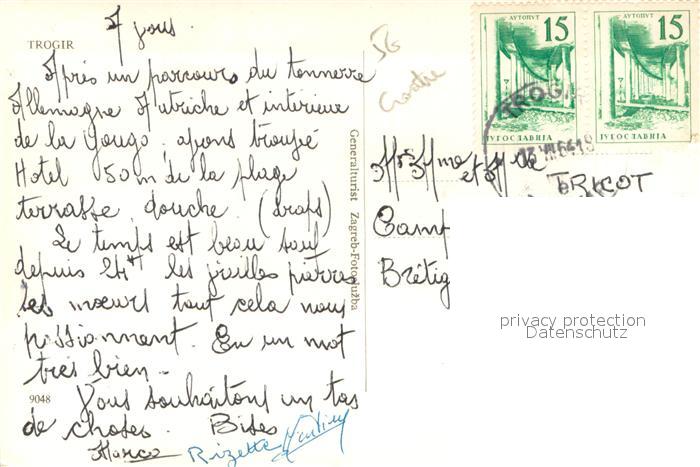 7 jours.
TROGIR
Après un parcours du tonnerre
Allemagne Autriche et interieure
de la Yougo. avons trouvé
Hotel 50 m de la plage
terrasse douche (draps)
Le temps est beau sauf
depuis 24H les vieilles pierres
les mœurs tout cela nous
passionnent. En un mot
tres bien.
9048
Vous souhaitons un tas
de choses. Bises
Rizette
Generalturist Zagreb-Fotoslužba
56
Croatie
АУТОПУТ 15
ЈУГОСЛАВИЈА
АУТОПУТ 15
ЈУГОСЛАВИЈА
TROGIR
Mr Mme et Mlle
TRICOT
Camp
Brétig
privacy protection
Datenschutz